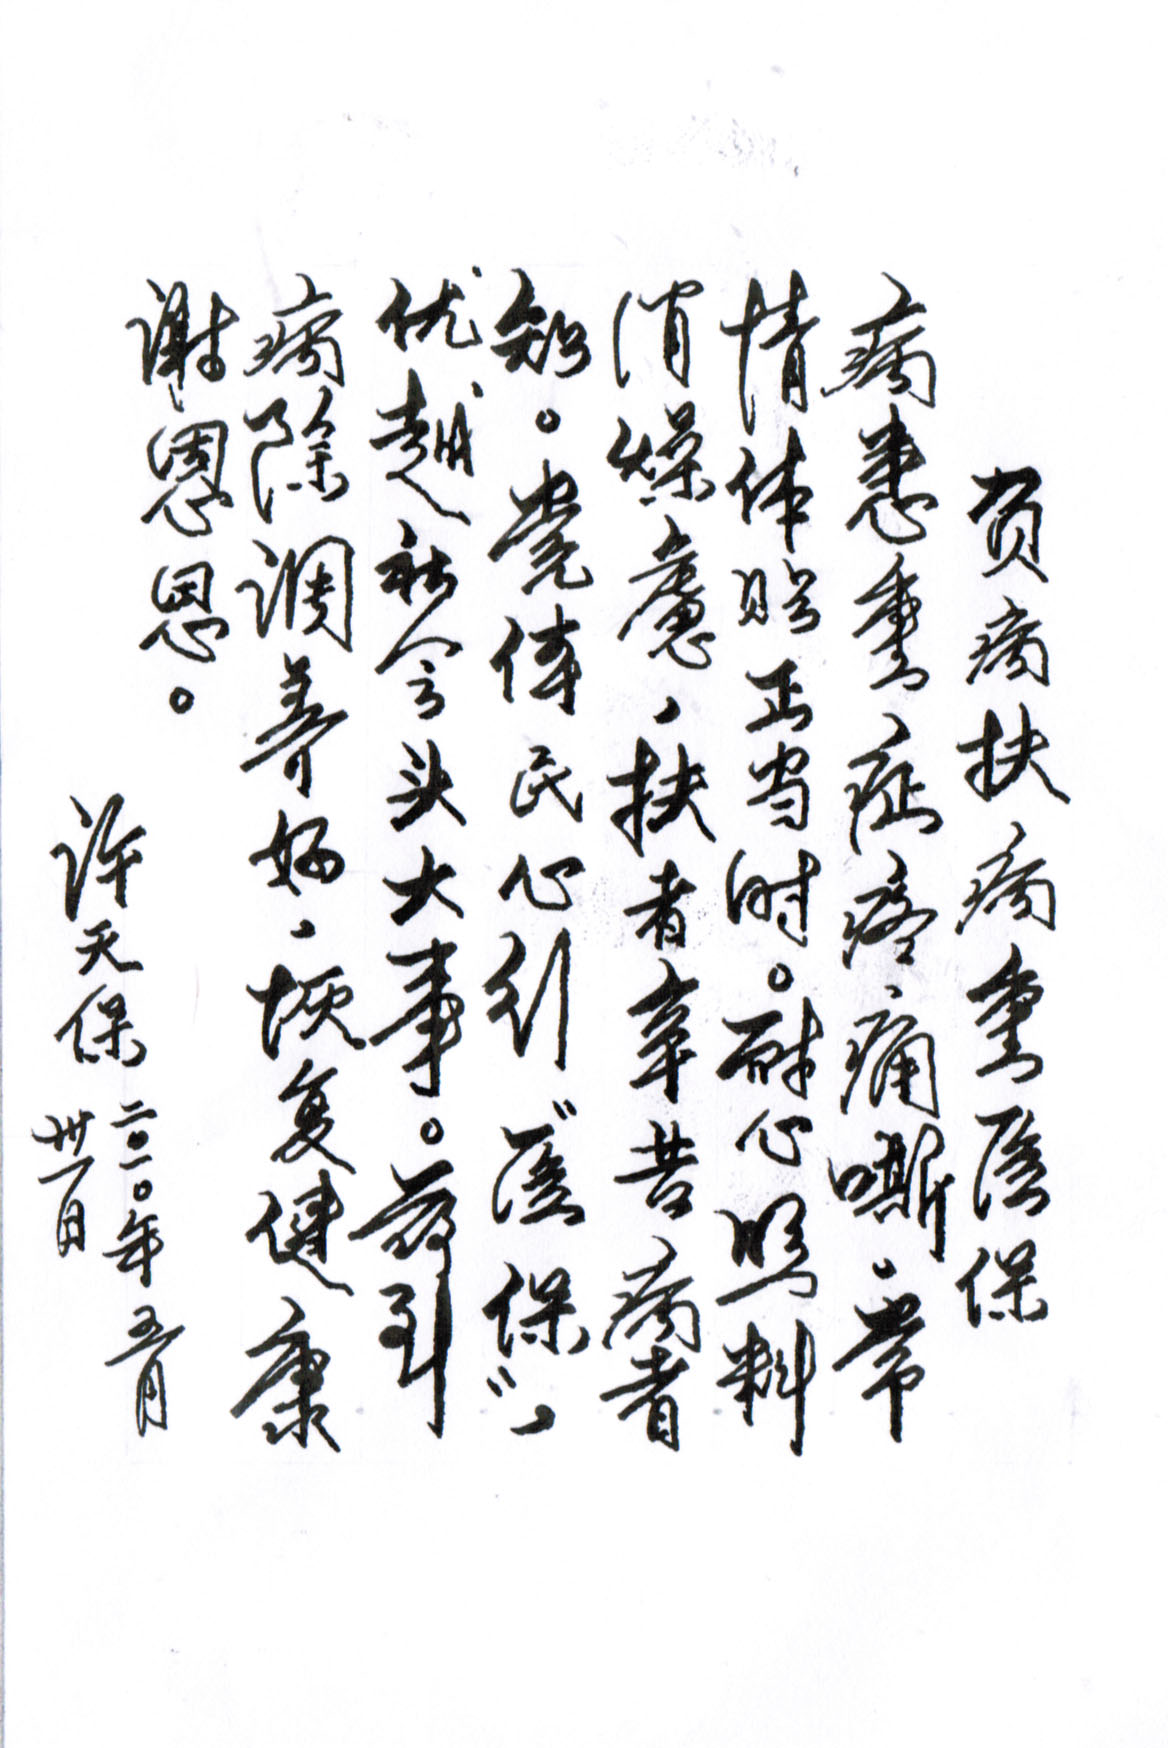 贫病扶病重医保
病患重症疼痛嘶、常
情体贴正当时。耐心照料
消燥意，扶者辛苦病者
知。党体民心引“医保”，
优越社会头大事。药到
病除调养好，恢复健康
谢恩恩。
许天保
二〇一〇年五月
卅一日